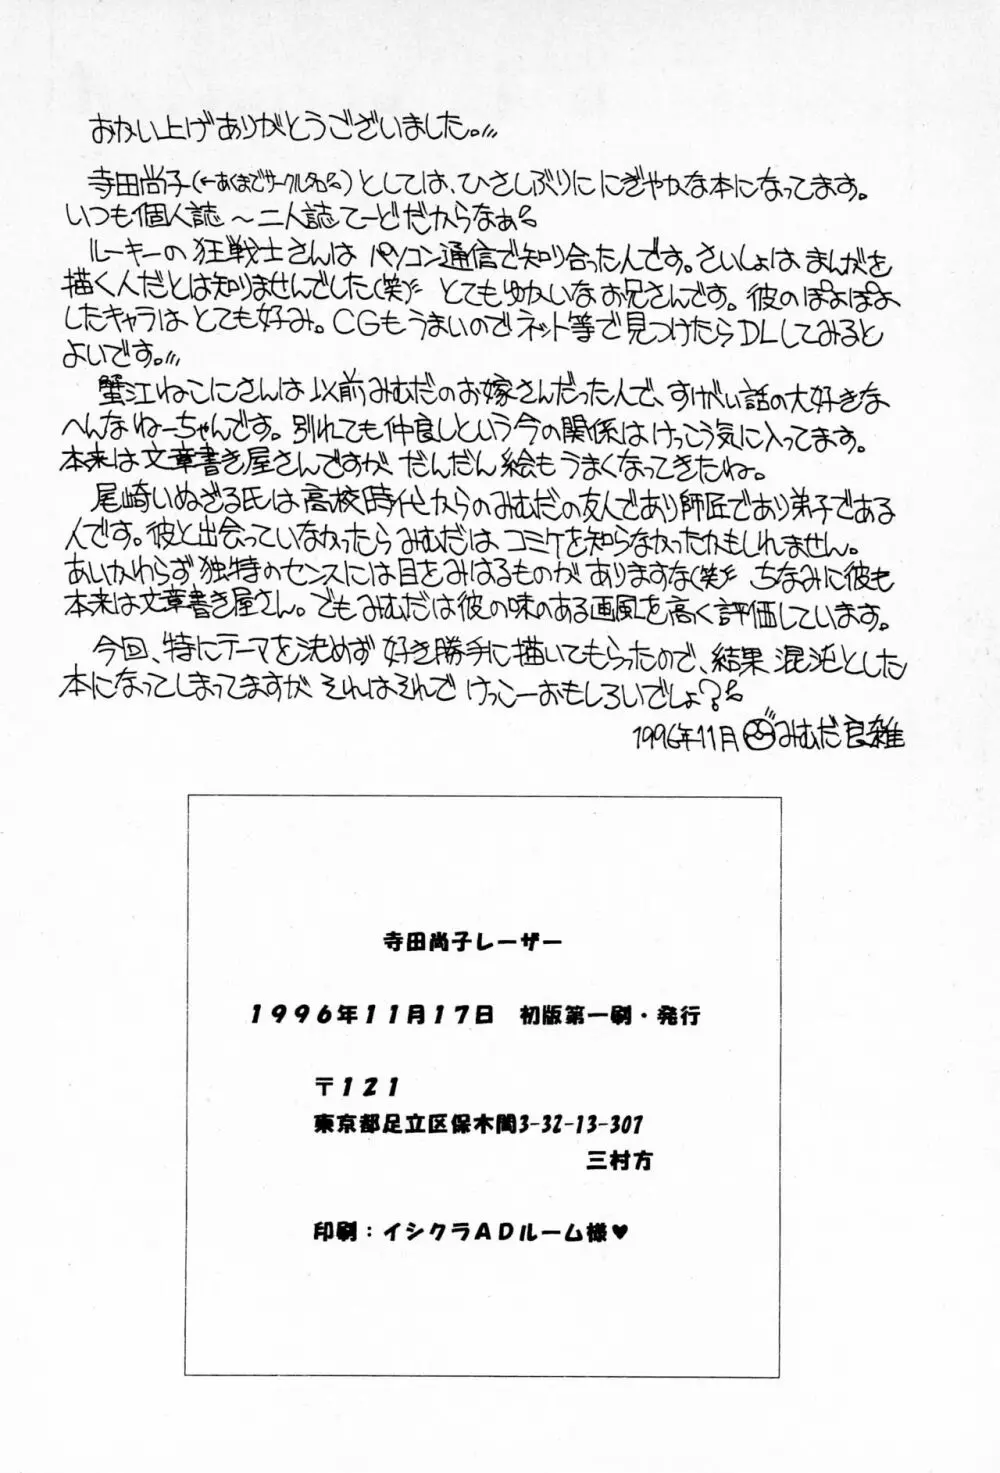 おかい上げありがとうございました。
寺田尚子(←あくまでサークル名な)としては、ひさしぶりににぎやかな本になってます。
いつも個人誌〜二人誌てーどだからなぁ
ルーキーの狂戦士さんはパソコン通信で知り合った人です。さいしょはまんがを
描く人だとは知りませんでした(笑) とてもゆかいなお兄さんです。彼のぽよぽよ
したキャラはとても好み。CGもうまいのでネット等で見つけたらDLしてみると
よいです。
蟹江ねこにさんは以前みむだのお嫁さんだった人で、すけべい話の大好きな
へんなねーちゃんです。別れても仲良しという今の関係はけっこう気に入ってます。
本来は文章書き屋さんですがだんだん絵もうまくなってきたね。
尾崎いぬざる氏は高校時代からのみむだの友人であり師匠であり弟子である
人です。彼と出会っていなかったらみむだはコミケを知らなかったかもしれません。
あいかわらず独特のセンスには目をみはるものがありますな(笑) ちなみに彼も
本来は文章書き屋さん。でもみむだは彼の味のある画風を高く評価しています。
今回、特にテーマを決めず好き勝手に描いてもらったので、結果混沌とした
本になってしまってますがそれはそれでけっこーおもしろいでしょ?
1996年11月 みむだ良雑
寺田尚子レーザー
1996年11月17日 初版第一刷・発行
〒121
東京都足立区保木間3-32-13-307
三村方
印刷：イシクラADルーム様♥